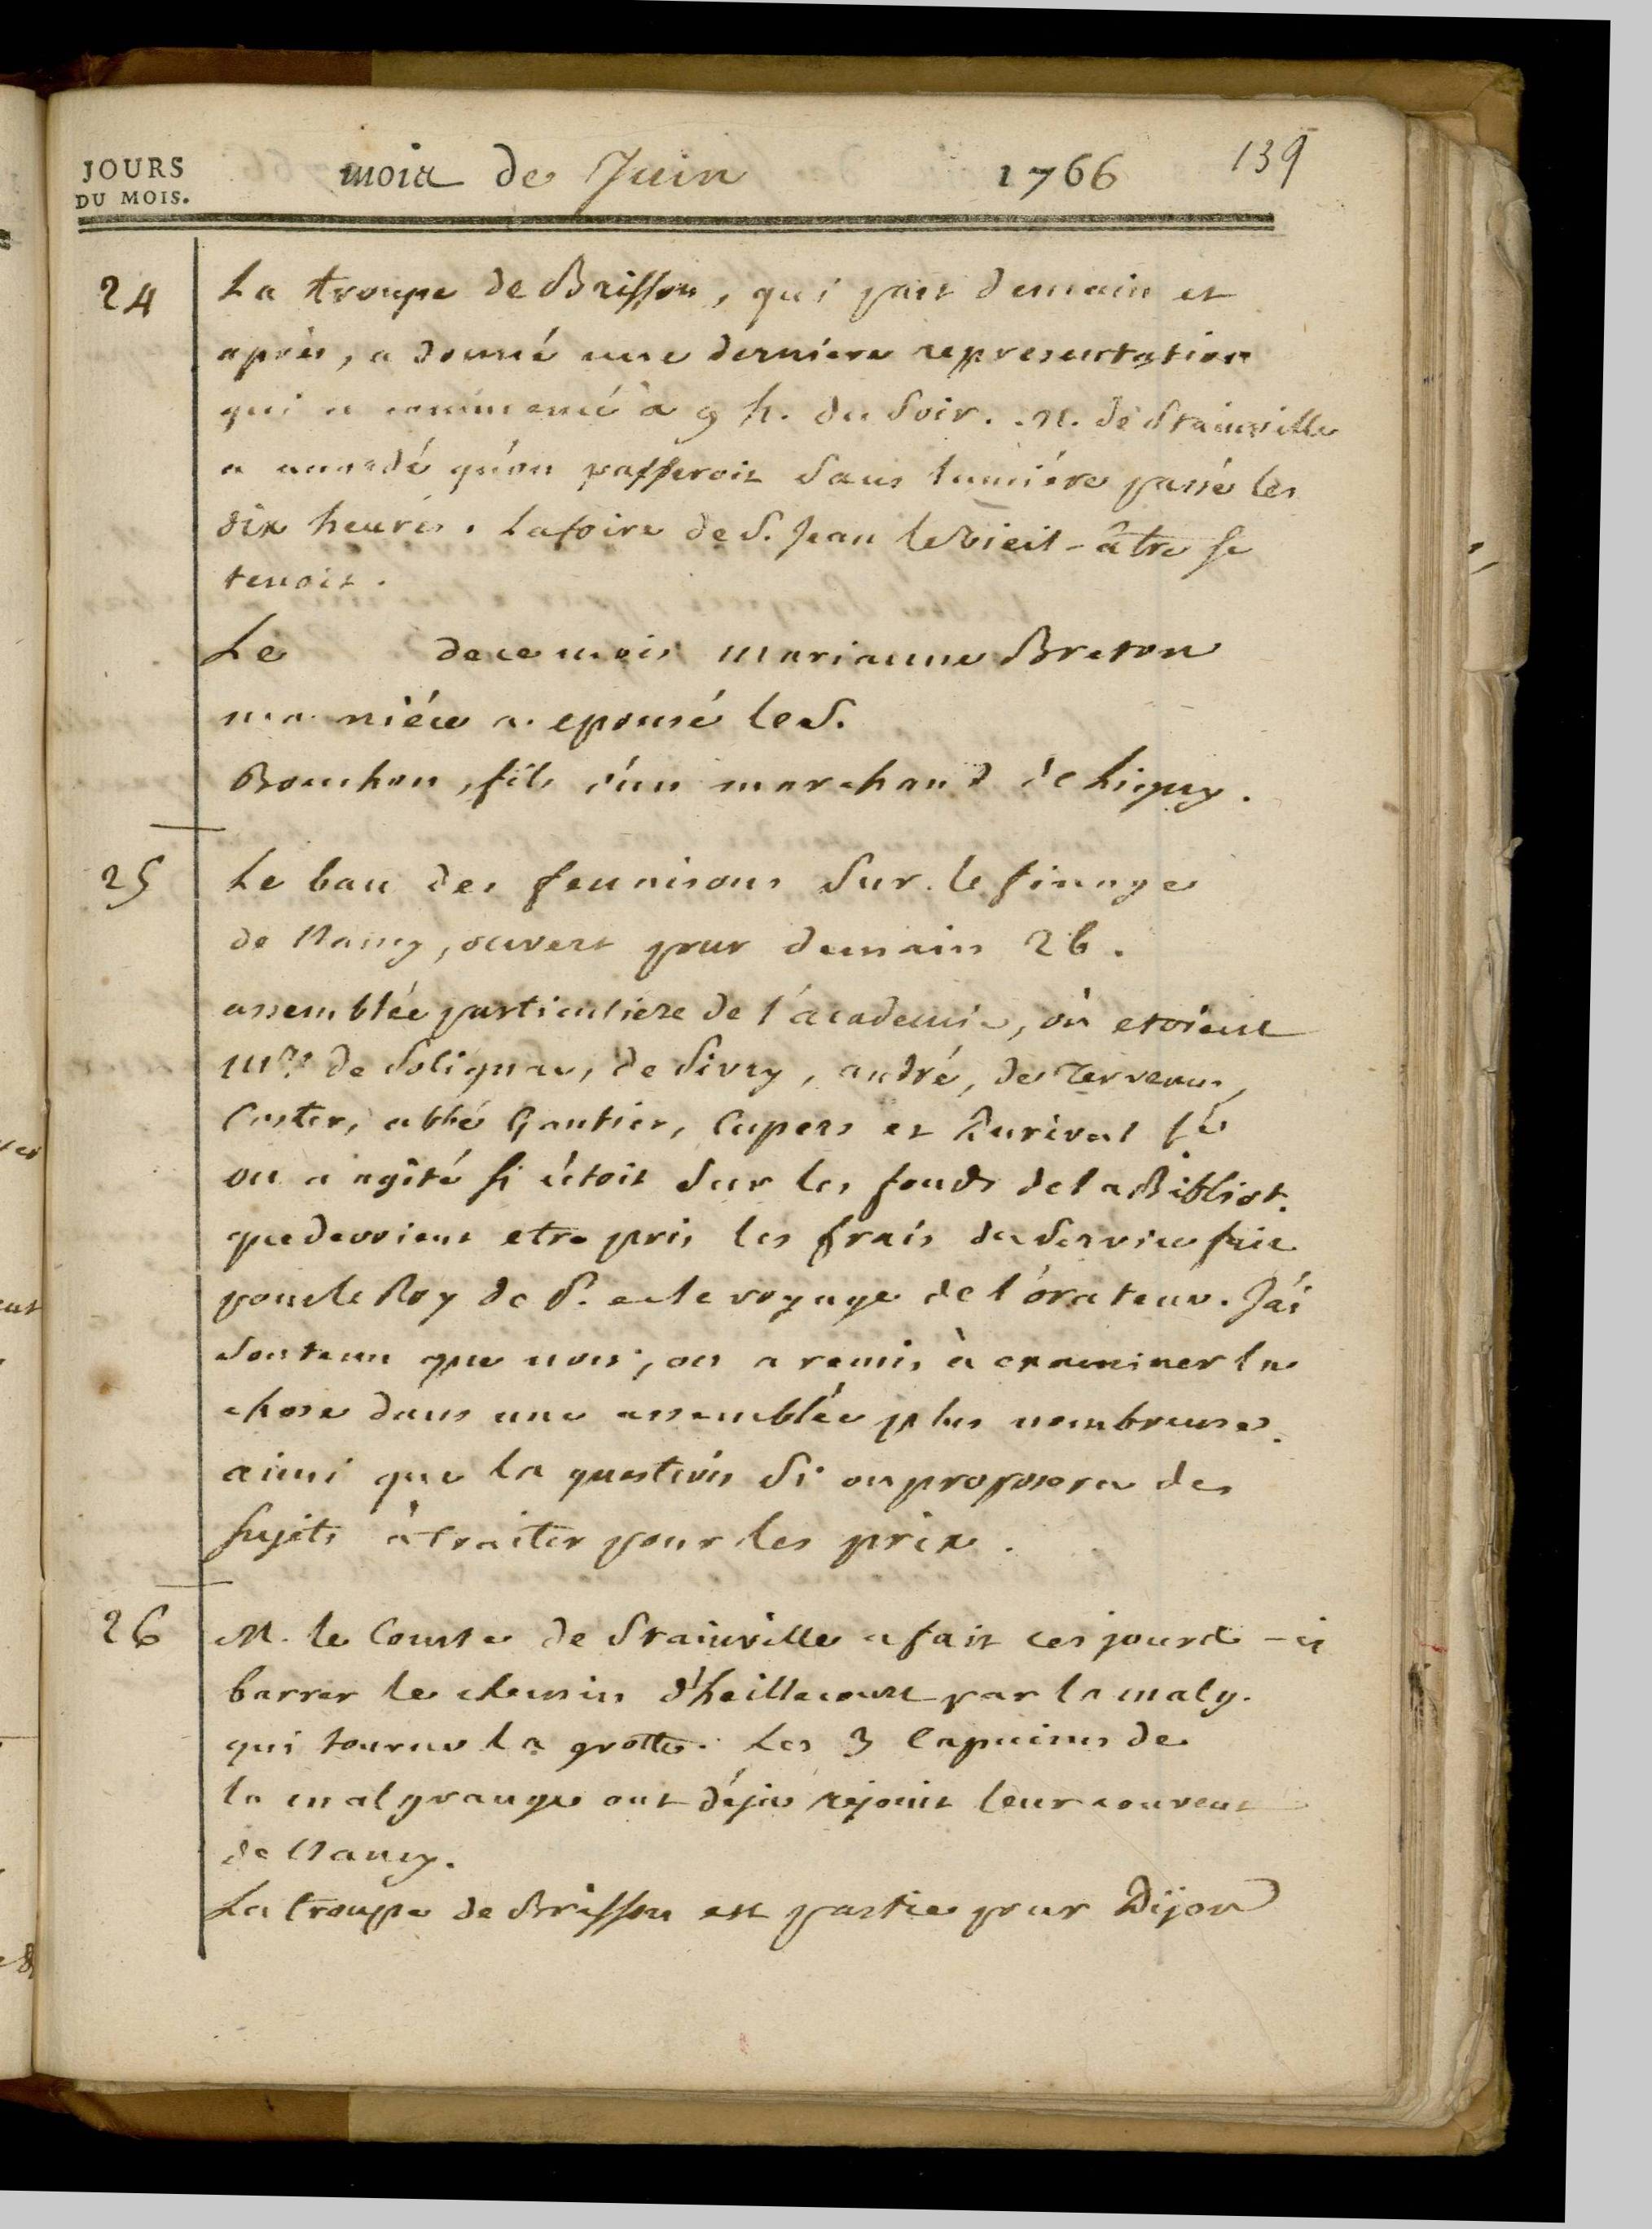 JOURS
DU MOIS.
mois de Juin 1766 139
24
La troupe de Brisson, qui part demain et
après, a donné une derniere representation
qui a commencé à 9 h. du soir. M. de Stainville
a accordé qu'on passeroit sans lumiére passé les
dix heures. La foire de S. Jean le Vieil-âtre se
tenoit.
Le de ce mois marianne Breton
ma niéce a epousé le S.
Bouchon, fils d'un marchand de Ligny.
25
Le ban des fenaisons sur le finage
de Nancy, ouvert pour demain 26.
assemblée particuliere de l'academie, où etoient
Mrs. de Solignac, de Sivry, andré, de Tervenus,
Coster, abbé Gautier, Cupers et Durival
on a agité si c'etoit sur les fonds de la Bibliot.
que devoient etre pris les frais du service fait
pour le Roy de P. et le voyage de l'orateur. J'ai
soutenu que non; on a remis à examiner la
chose dans une assemblée plus nombreuse.
ainsi que la question si on proposera des
sujets à traiter pour les prix.
26
M. le Comte de Stainville a fait ces jours-ci
barrer le chemin d'heillecourt par la malg.
qui tourne la grotte. Les 3 Capucins de
la malgrange ont déja rejoint leur couvent
de Nancy.
La troupe de Brisson est partie pour Dijon